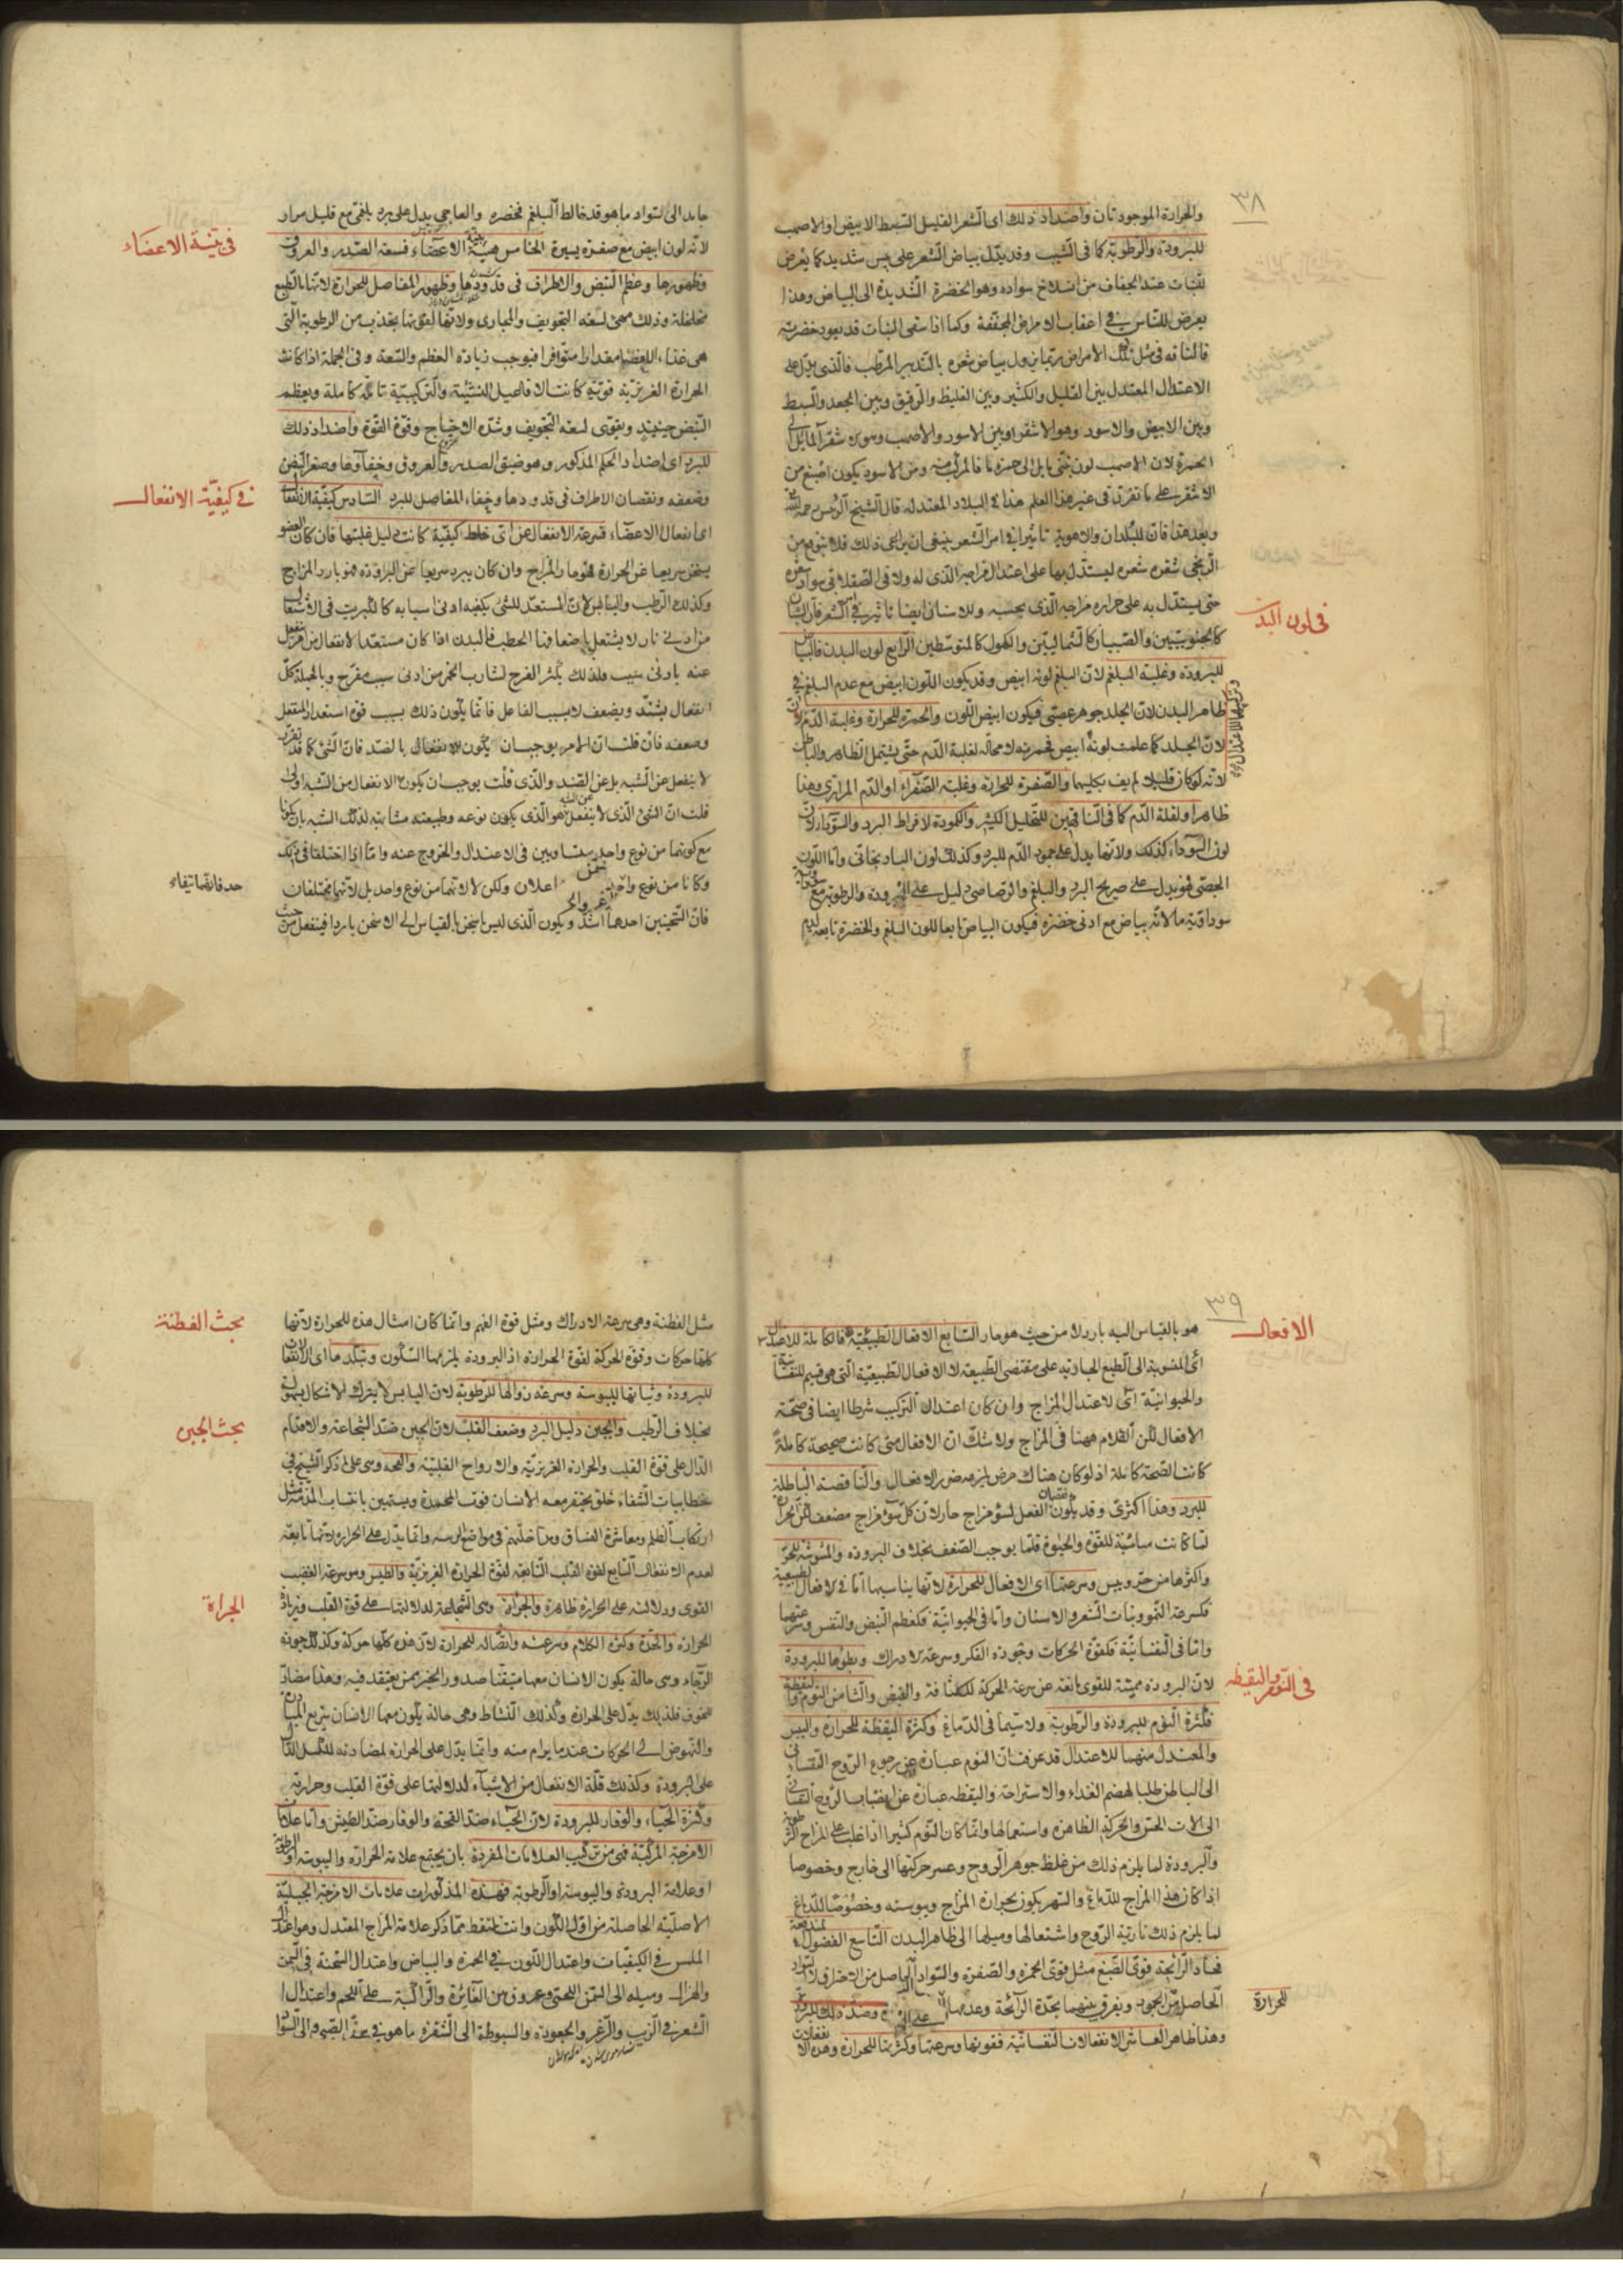 ٣٨
والحرارة الموجودتان واضداد ذلك اى الشعر القليل السبط الابيض او الاصهب
للبرودة والرطوبة كما فى الشيب وقد يدل بياض الشعر على يبس شديد كما يعرض
للنبات عند الجفاف من انسلاخ سواده وهو الخضرة الشديدة الى البياض وهذا
يعرض للناس فى اعقاب الامراض المجففة وكما اذا سقى النبات قد يعود خضرته
فالناقه فى مثل تلك الامراض ربما يزول بياض شعره بالتدبير المرطب فالذى يدل على
الاعتدال المعتدل بين القليل والكثير وبين الغليظ والرقيق وبين الجعد والسبط
وبين الابيض والاسود وهو الاشقر او بين الاسود والاصهب
الحمرة لان الاصهب لون يميل الى حمرة ما فالمركب منه ومن الاسود يكون اصبغ من
الاشقر على ما تقرر فى غير هذا العلم هذا فى البلاد المعتدله قال الشيخ الرئيس رحمه الله
وبعد هذا فان للبلدان والاهوية تاثيرا فى امر الشعر ينبغى ان يراعى ذلك فلا يتوقع من
الزنجى شقرة شعره ليستدل بها على اعتدال مزاجه الذى له ولا فى الصقلابى سواد شعره
حتى يستدل به على حرارة مزاجه الذى يحسبه وللاسنان ايضا تاثير فى امر الشعر فان الشبان
كالجنوبيين والصبيان كالشماليين والكهول كالمتوسطين الرابع لون البدن فالبياض
للبرودة وغلبة البلغم لان البلغم لونه ابيض وقد يكون اللون ابيض مع عدم البلغم فى
ظاهر البدن لان الجلد جوهر عصبى فيكون ابيض اللون والحمرة للحرارة وغلبة الدم
لان الجلد كما علمت لونه ابيض فحمرته لا محالة لغلبة الدم حتى يشتمل الظاهر والباطن
لانه لو كان قليلا لم يف بكليهما والصفرة للحرارة وغلبة الصفراء او الدم المرارى وهذا
ظاهر او لقلة الدم كما فى الناقهين للتحليل الكثير والكمودة لافراط البرد والسوداء لان
لون السوداء كذلك ولانها يدل على جمود الدم للبرد وكذلك لون الباذنجانى واما اللون
الجصى فهو يدل على صريح البرد والبلغم والرصاصى دليل على البرودة والرطوبة مع
سوداوية ما لانه بياض مع ادنى خضرة فيكون البياض تابعا للون البلغم والخضرة تابعه لدم
فى لون البدن
جامد الى السواد ما هو قد خالط البلغم فخضره والعاجى يدل على برد بلغمى مع قليل مرار
لانه لون ابيض مع صفرة يسيرة الخامس هيئة الاعضاء فسعة الصدر والعروق
وظهورها وعظم النبض والاطراف فى قدودها وظهور المفاصل للحرارة لانها بالطبع
مخلخلة وذلك معين لسعة التجويف والمجارى ولانها لقوتها يجذب من الرطوبة التى
هى غذاء الاعضا مقدارا متوافرا فيوجب زيادة العظم والسعة وفى الجملة اذا كانت
الحرارة الغريزية قوية كانت الافاعيل النشئية والتركيبية تامة كاملة ويعظم
النبض حينئذ ويقوى لسعة التجويف وشدة الاحتياج وقوة القوة واضداد ذلك
للبرد اى اضداد الحكم المذكور وهو ضيق الصدر والعروق وخفاؤها وصغر النبض
وضعفه ونقصان الاطراف فى قدودها وخفاء المفاصل للبرد السادس كيفية الانفعال
اى انفعال الاعضاء فسرعة الانفعال عن اى خلط كيفية كانت دليل غلبتها فان كان العضو
يسخن سريعا عن الحرارة فهو حار المزاج وان كان يبرد سريعا عن البرودة فهو بارد المزاج
وكذلك الرطب واليابس لان المستعد للشئ يكفيه ادنى اسبابه كالكبريت فى الاشتعال
من ادنى نار لا يشتعل باضعافها الحطب فالبدن اذا كان مستعدا لانفعال من امر ينفعل
عنه بادنى سبب ولذلك يكثر الفرح لشارب الخمر من ادنى سبب مفرح وبالجملة كل
انفعال يشتد ويضعف لا بسبب الفاعل فانما يكون ذلك بسبب قوة استعداد المنفعل
وضعفه فان قلت ان الامر يوجب ان يكون الانفعال بالضد فان الشئ كما قد تقرر
لا ينفعل عن الشبه بل عن الضد والذى قلت يوجب ان يكون الانفعال من الشبه اولى
قلت ان الشئ الذى لا ينفعل عن الشبه هو الذى يكون نوعه وطبيعته مشابه لذلك الشبه بان يكونا
مع كونهما من نوع واحد متساويين فى الاعتدال والخروج عنه واما اذا اختلفا فى ذلك
وكانا من نوع واحد اعلان ولكن لا لانهما من نوع واحد بل لانهما مختلفان
فان السخنين احدهما اشد ويكون الذى ليس باسخن بالقياس الى الاسخن باردا فينفعل من حيث
فى هيئة الاعضاء
فى كيفيّة الانفعال
٣٩
هو بالقياس اليه بارد لا من حيث هو حار السابع الافعال الطبيعية فالكاملة للاعتدال
اى المنسوبة الى الطبع الجارية على مقتضى الطبيعة لا الافعال الطبيعية التى هى قسيم للنفسانية
والحيوانية اى لاعتدال المزاج وان كان اعتدال التركيب شرطا ايضا فى صحة
الافعال لكن الكلام ههنا فى المزاج ولا شك ان الافعال متى كانت صحيحة كاملة
كانت الصحة كاملة اذ لو كان هناك مرض لزمه ضرر الافعال والناقصة الباطلة
للبرد وهذا اكثرى وقد يكون نقصان الفعل لسوء مزاج حار لان كل سوء مزاج مضعف لكن الحرارة
لما كانت مناسبة للقوة والحيوة قلما يوجب الضعف بخلاف البرودة والمشوشة للحر
واكثرها من حر ويبس وسرعتها اى الافعال للحرارة لانها يناسبها اما فى الافعال الطبيعية
فكسرعة النمو ونبات الشعر والاسنان واما فى الحيوانية فكعظم النبض والنفس وسرعتهما
واما فى النفسانية فكقوة الحركات وجودة الفكر وسرعة الادراك وبطؤها للبرودة
لان البرودة مميتة للقوى مانعة عن سرعة الحركة للكثافة والقبض والثامن النوم واليقظة
فكثرة النوم للبرودة والرطوبة ولا سيما فى الدماغ وكثرة اليقظة للحرارة واليبس
والمعتدل منهما للاعتدال قد عرفت ان النوم عبارة عن رجوع الروح النفسانى
الى الباطن طلبا لهضم الغذاء والاستراحة واليقظة عبارة عن انصباب الروح النفسانى
الى الات الحس والحركة الظاهرة واستعمالها وانما كان النوم كثيرا اذا غلب على المزاج الرطوبة
والبرودة لما يلزم ذلك من غلظ جوهر الروح وعسر حركتها الى خارج وخصوصا
اذا كان هذا المزاج للدماغ والسهر يكون بحرارة المزاج ويبوسته وخصوصا للدماغ
لما يلزم ذلك نارية الروح واشتعالها وميلها الى ظاهر البدن التاسع الفضول
فحاد الرائحة قوى الصبغ مثل قوى الحمرة والصفرة والسواد الحاصل من الاحتراق لا السواد
الحاصل من الجمود ويفرق بينهما بحدة الرائحة وعدمها وضد ذلك للبرودة
وهذا ظاهر العاشر الانفعالات النفسانية فقوتها وسرعتها وكثرتها للحرارة وهذه الانفعالات
الافعال
فى النوم واليقظه
للحرارة
مثل الفطنة وهى سرعة الادراك ومثل قوة الفهم وانما كان امثال هذه للحرارة لانها
كلها حركات وقوة الحركة لقوة الحرارة اذ البرودة يلزمها السكون وتبلدها اى الانفعالات
للبرودة وثباتها لليبوسة وسرعة زوالها للرطوبة لان اليابس لا يترك الاشكال بسهولة
بخلاف الرطب والجبن دليل البرد وضعف القلب لان الجبن ضد الشجاعة والاقدام
الدال على قوة القلب والحرارة الغريزية والارواح القلبية والقحة وهى على ما ذكر الشيخ فى
خطابيات الشفاء خلق يحتقر معه الانسان فوت المحمدة ويستهين باكتساب المذمة مثل
ارتكاب الظلم ومعاشرة الفساق وانما يدل على الحرارة لانها تابعة
لعدم الانفعال التابع لقوة القلب التابعة لقوة الحرارة الغريزية والطيش وهو سرعة الغضب
القوى ودلالته على الحرارة ظاهرة والجرأة وهى الشجاعة لدلالتها على قوة القلب وزيادة
الحرارة والحدة وكثرة الكلام وسرعته واتصاله للحرارة لان هذه كلها حركة وكذلك جودة
الرجاء وهى حالة يكون الانسان معها متيقنا صدور الخير ممن يعتقد فيه وهذا مضاد
للخوف فلذلك يدل على الحرارة وكذلك النشاط وهى حالة يكون معها الانسان سريع المبادرة
والنهوض الى الحركات عندما يرام منه وانما يدل على الحرارة لمضادته للكسل الدال
على البرودة وكذلك قلة الانفعال من الاشياء لدلالتها على قوة القلب وحرارته
وكثرة الحياء والوقار للبرودة لان الحياء ضد القحة والوقار ضد الطيش واما علامات
الامزجة المركبة فهى من تركيب العلامات المفردة بان يجتمع علامة الحرارة واليبوسة او الرطوبة
او علامة البرودة واليبوسة او الرطوبة فهذه المذكورات علامات الامزجة الجبلية
الاصلية الحاصلة من اول الكون وانت تلتقط مما ذكر علامة المزاج المعتدل وهو اعتدال
الملمس فى الكيفيات واعتدال اللون فى الحمرة والبياض واعتدال السحنة فى السمن
والهزال وميله الى السمن اللحمى وعروق بين الغائرة والراكبة على اللحم واعتدال
الشعر فى الزبب والزعر والجعودة والسبوطة الى الشقرة ما هو فى سن الصبى والى السواد
بحث الفطنة
بحث الجبن
الجراة